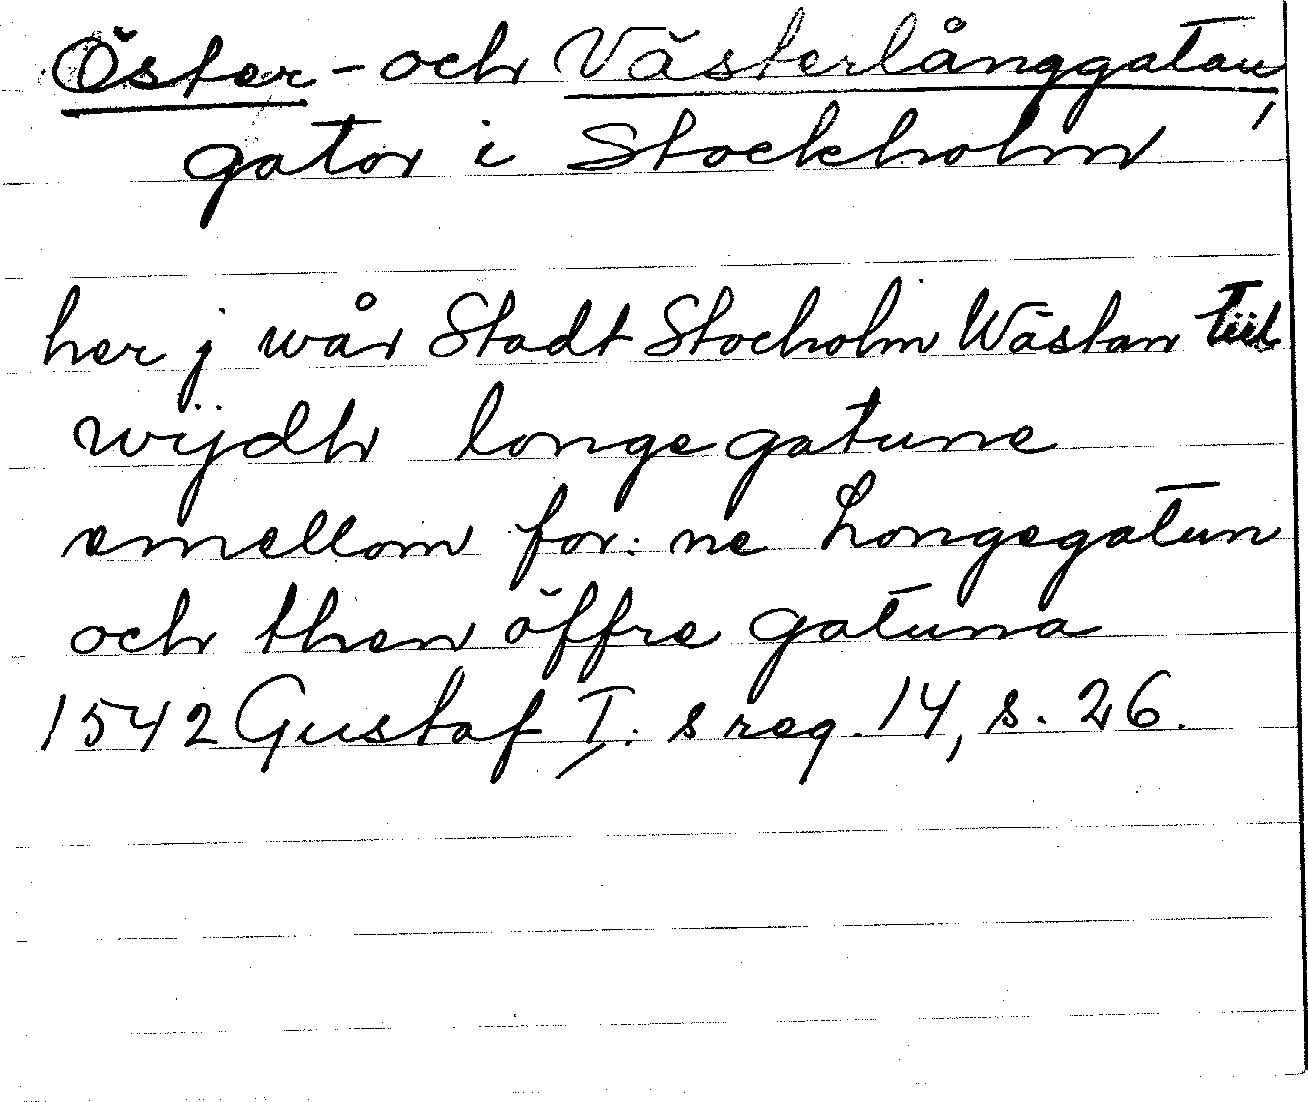 Öster- och Västerlånggatan,
gator i Stockholm
her j wår Stadt Stocholm Wästan tiil
wijdh longe gatune
emellom for: ne Longegatun
och then öffre gatuna
1542 Gustaf I: s reg. 14, s. 26.